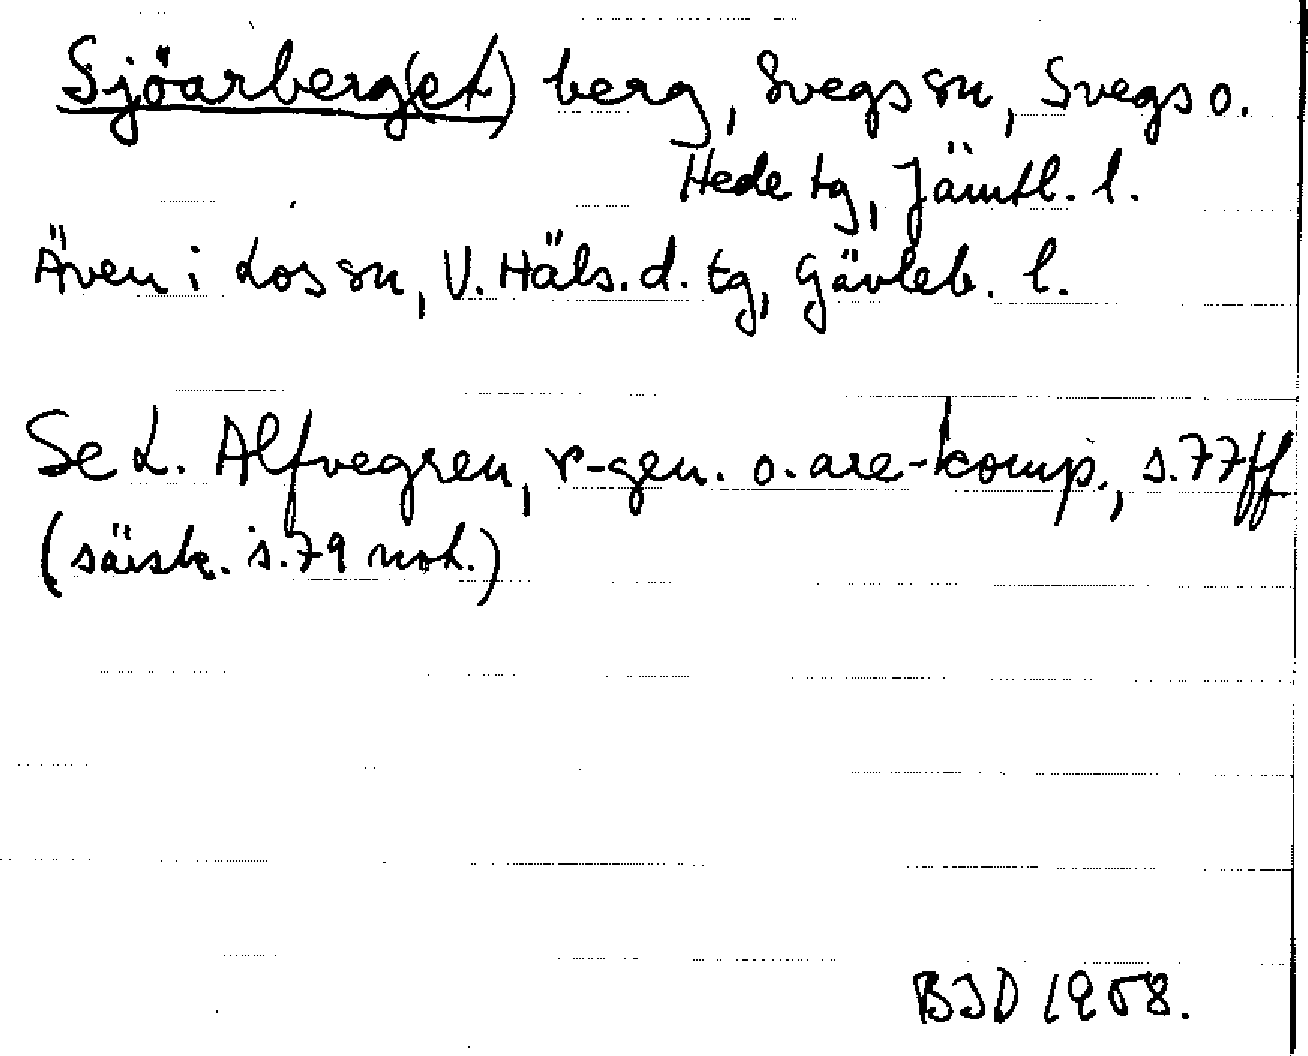 Sjöarberg(et) berg, Svegs sn, Svegs o.
Hede tg, Jämtl. l.
Även i Los sn, V. Häls. d. tg, Gävleb. l.
Se L. Alfvegren, r-gen. o. are-komp., s. 77ff
(särsk. s. 79 not.)
BJD 1958.